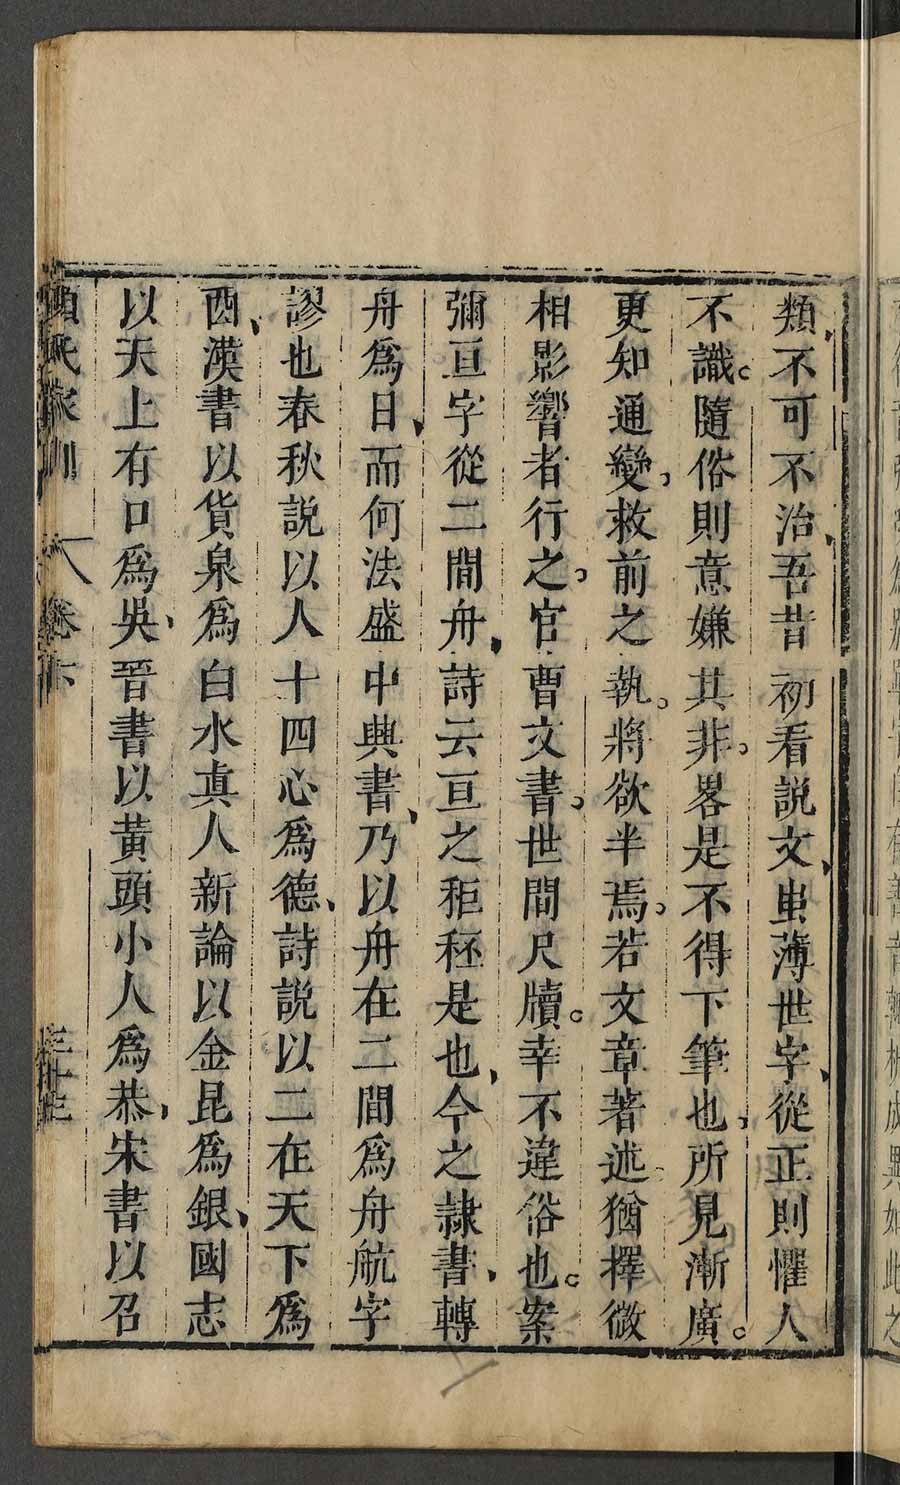 類不可不治吾昔初看説文蚩薄世字從正則懼人
不識隨俗則意嫌其非畧是不得下筆也所見漸廣
更知通變救前之執將欲半焉若文章著述猶擇微
相影響者行之官曹文書世間尺牘幸不違俗也案
彌亘字從二間舟詩云亘之秬秠是也今之隷書轉
舟爲日而何法盛中興書乃以舟在二間爲舟航字
謬也春秋説以人十四心爲德詩説以二在天下爲
酉漢書以貨泉爲白水真人新論以金昆爲銀國志
以天上有口爲吳晉書以黄頭小人爲恭宋書以召
顏氏家訓 卷下 三十七